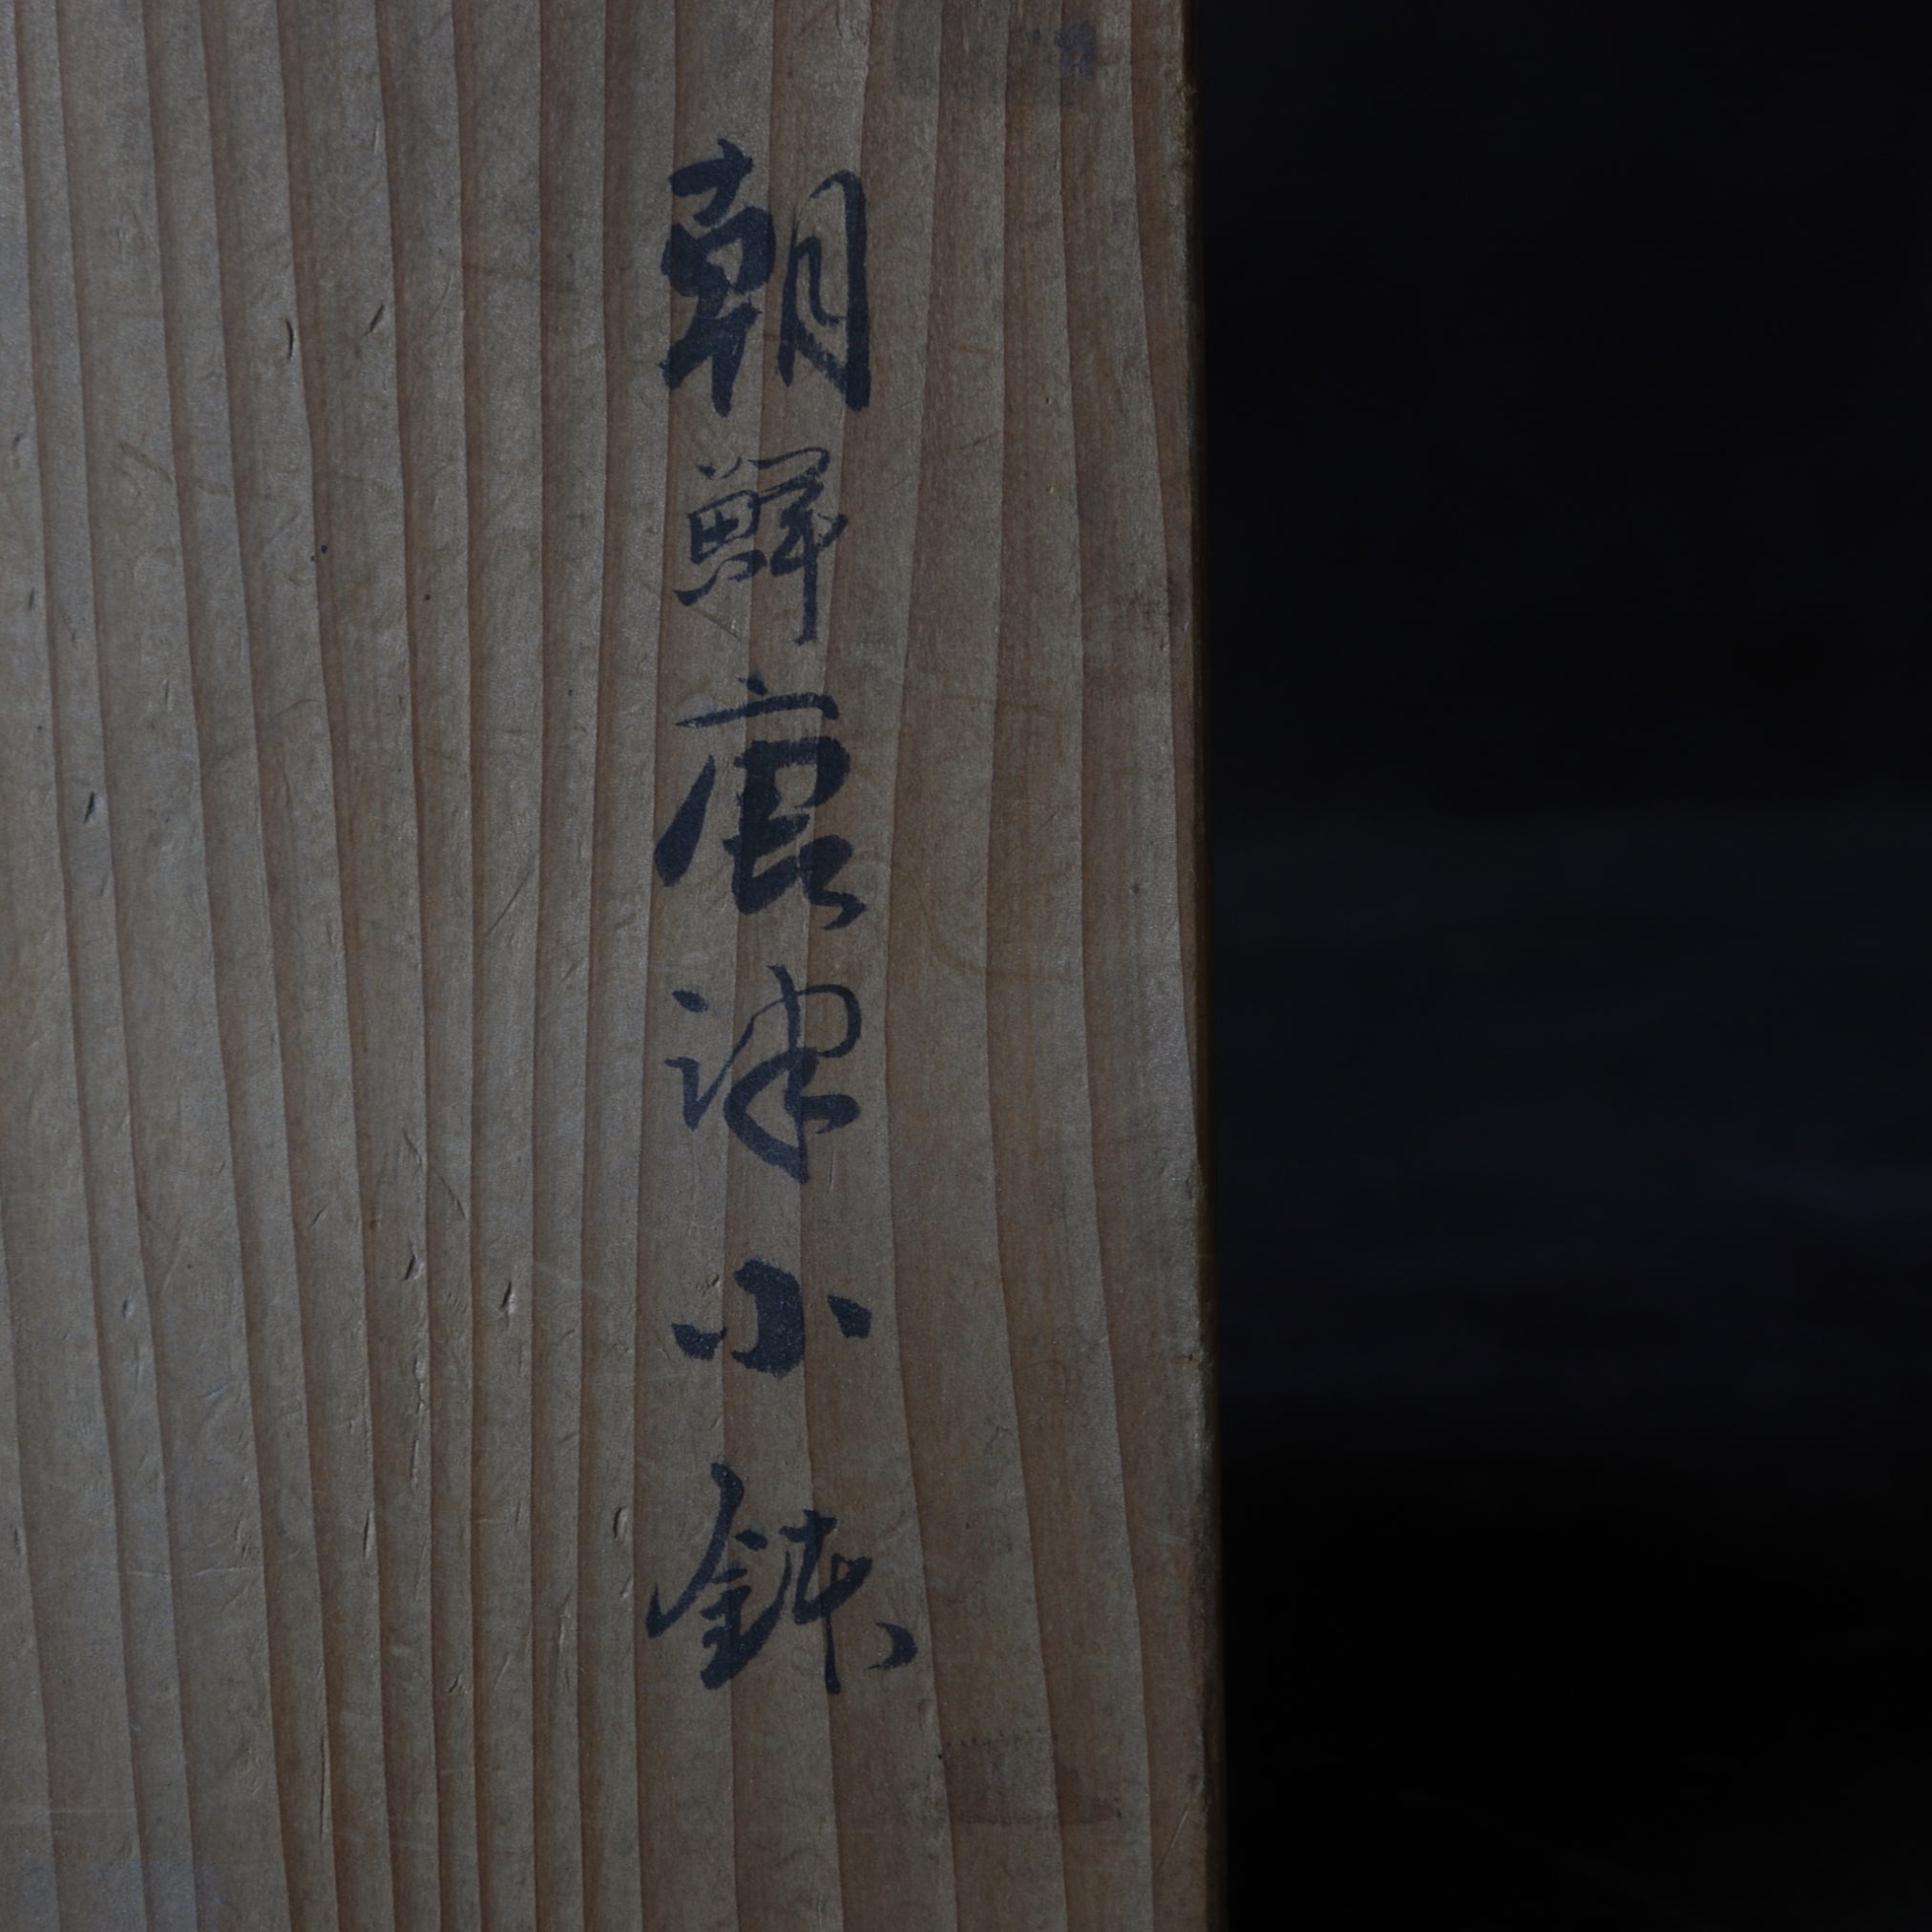 朝鮮唐津小鉢